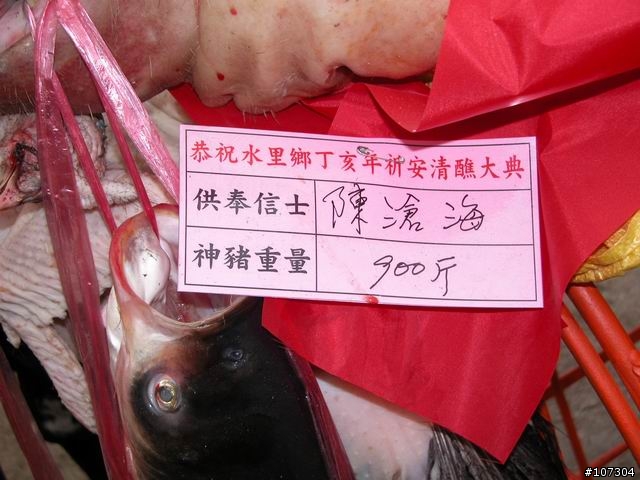 恭祝水里鄉丁亥年祈安清醮大典
供奉信士 陳滄海
神豬重量 900斤
#107304